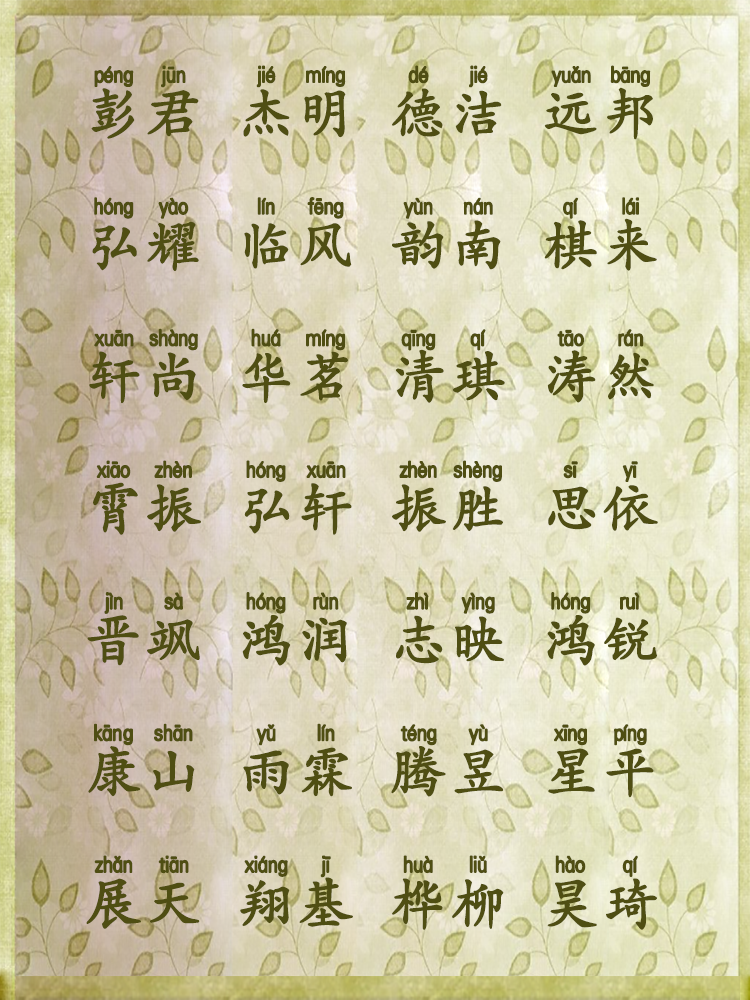 péng jūn jié míng dé jié yuǎn bāng
彭君 杰明 德洁 远邦
hóng yào lín fēng yùn nán qí lái
弘耀 临风 韵南 棋来
xuān shàng huá míng qīng qí tāo rán
轩尚 华茗 清琪 涛然
xiāo zhèn hóng xuān zhèn shèng sī yī
霄振 弘轩 振胜 思依
jìn sà hóng rùn zhì yìng hóng ruì
晋飒 鸿润 志映 鸿锐
kāng shān yǔ lín téng yù xīng píng
康山 雨霖 腾昱 星平
zhǎn tiān xiáng jī huà liǔ hào qí
展天 翔基 桦柳 昊琦